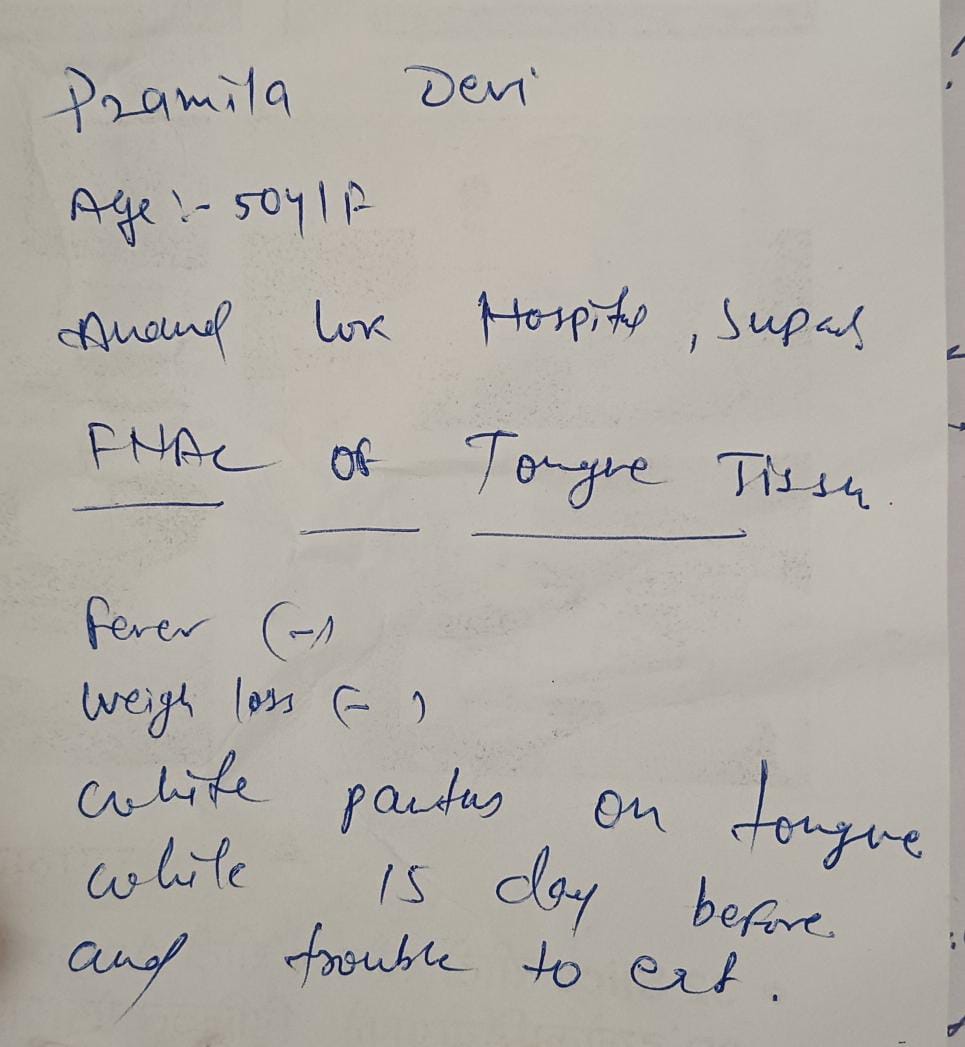 Pramila Devi
Age :- 50y/F
Anand Lok Hospital, Supaul
FNAC of Tongue Tissu.
fever (-)
weigh loss (-)
white paches on tongue
while 15 day before
and trouble to eat.